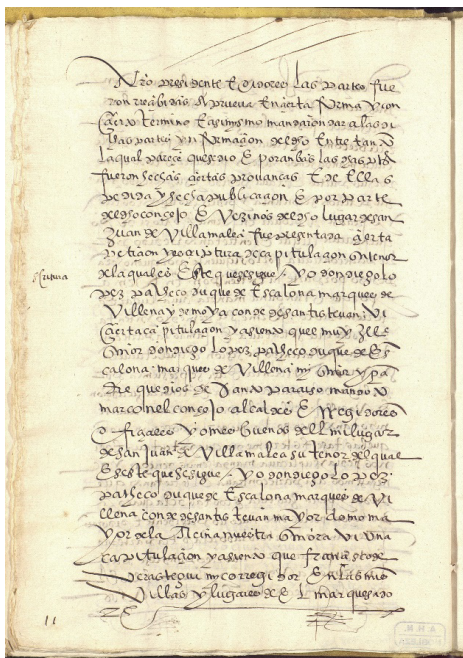 nro presidente E oidores las partes fue
ron rescibidas A prueva En çierta forma y con
çierto termino E asimysmo mandaron dar a las di
has partes ynformaçion de lo Entretanto
la qual pareçe que se dio E por anbas las dhas ptes
fueron hechas çiertas provanças E de Ellas
pedida y hecha publicaçion E por parte
del dho conçejo E vezinos del dho lugar de san
Juan de villamalea fue presentada çierta
petiçion y escriptura de capitulaçion su tenor
de la qual es Este que se sigue / yo don diego lo
escritura
pez pacheco duque de Escalona marques de
villena y de moya conde de santistevan vi
çierta capitulaçion y asiento que el muy Ille
señor don diego lopez pacheco duque de Es
calona marques de villena my señor y pa
dre que dios de santo paraiso mando
marco nel conçejo alcaldes E Regidores
ofiçiales y omes buenos del mi lugar
de san Juan de villamalea su tenor del qual
Es Este que se sigue / yo don diego lopez
pacheco duque de Escalona marques de vi
llena conde de santistevan mayordomo ma
yor de la Reina nuestra señora vi una
capitulaçion y asiento que françisco de
verastegui my corregidor En las mis
villas y lugares del marquesado
11
A.H.N.